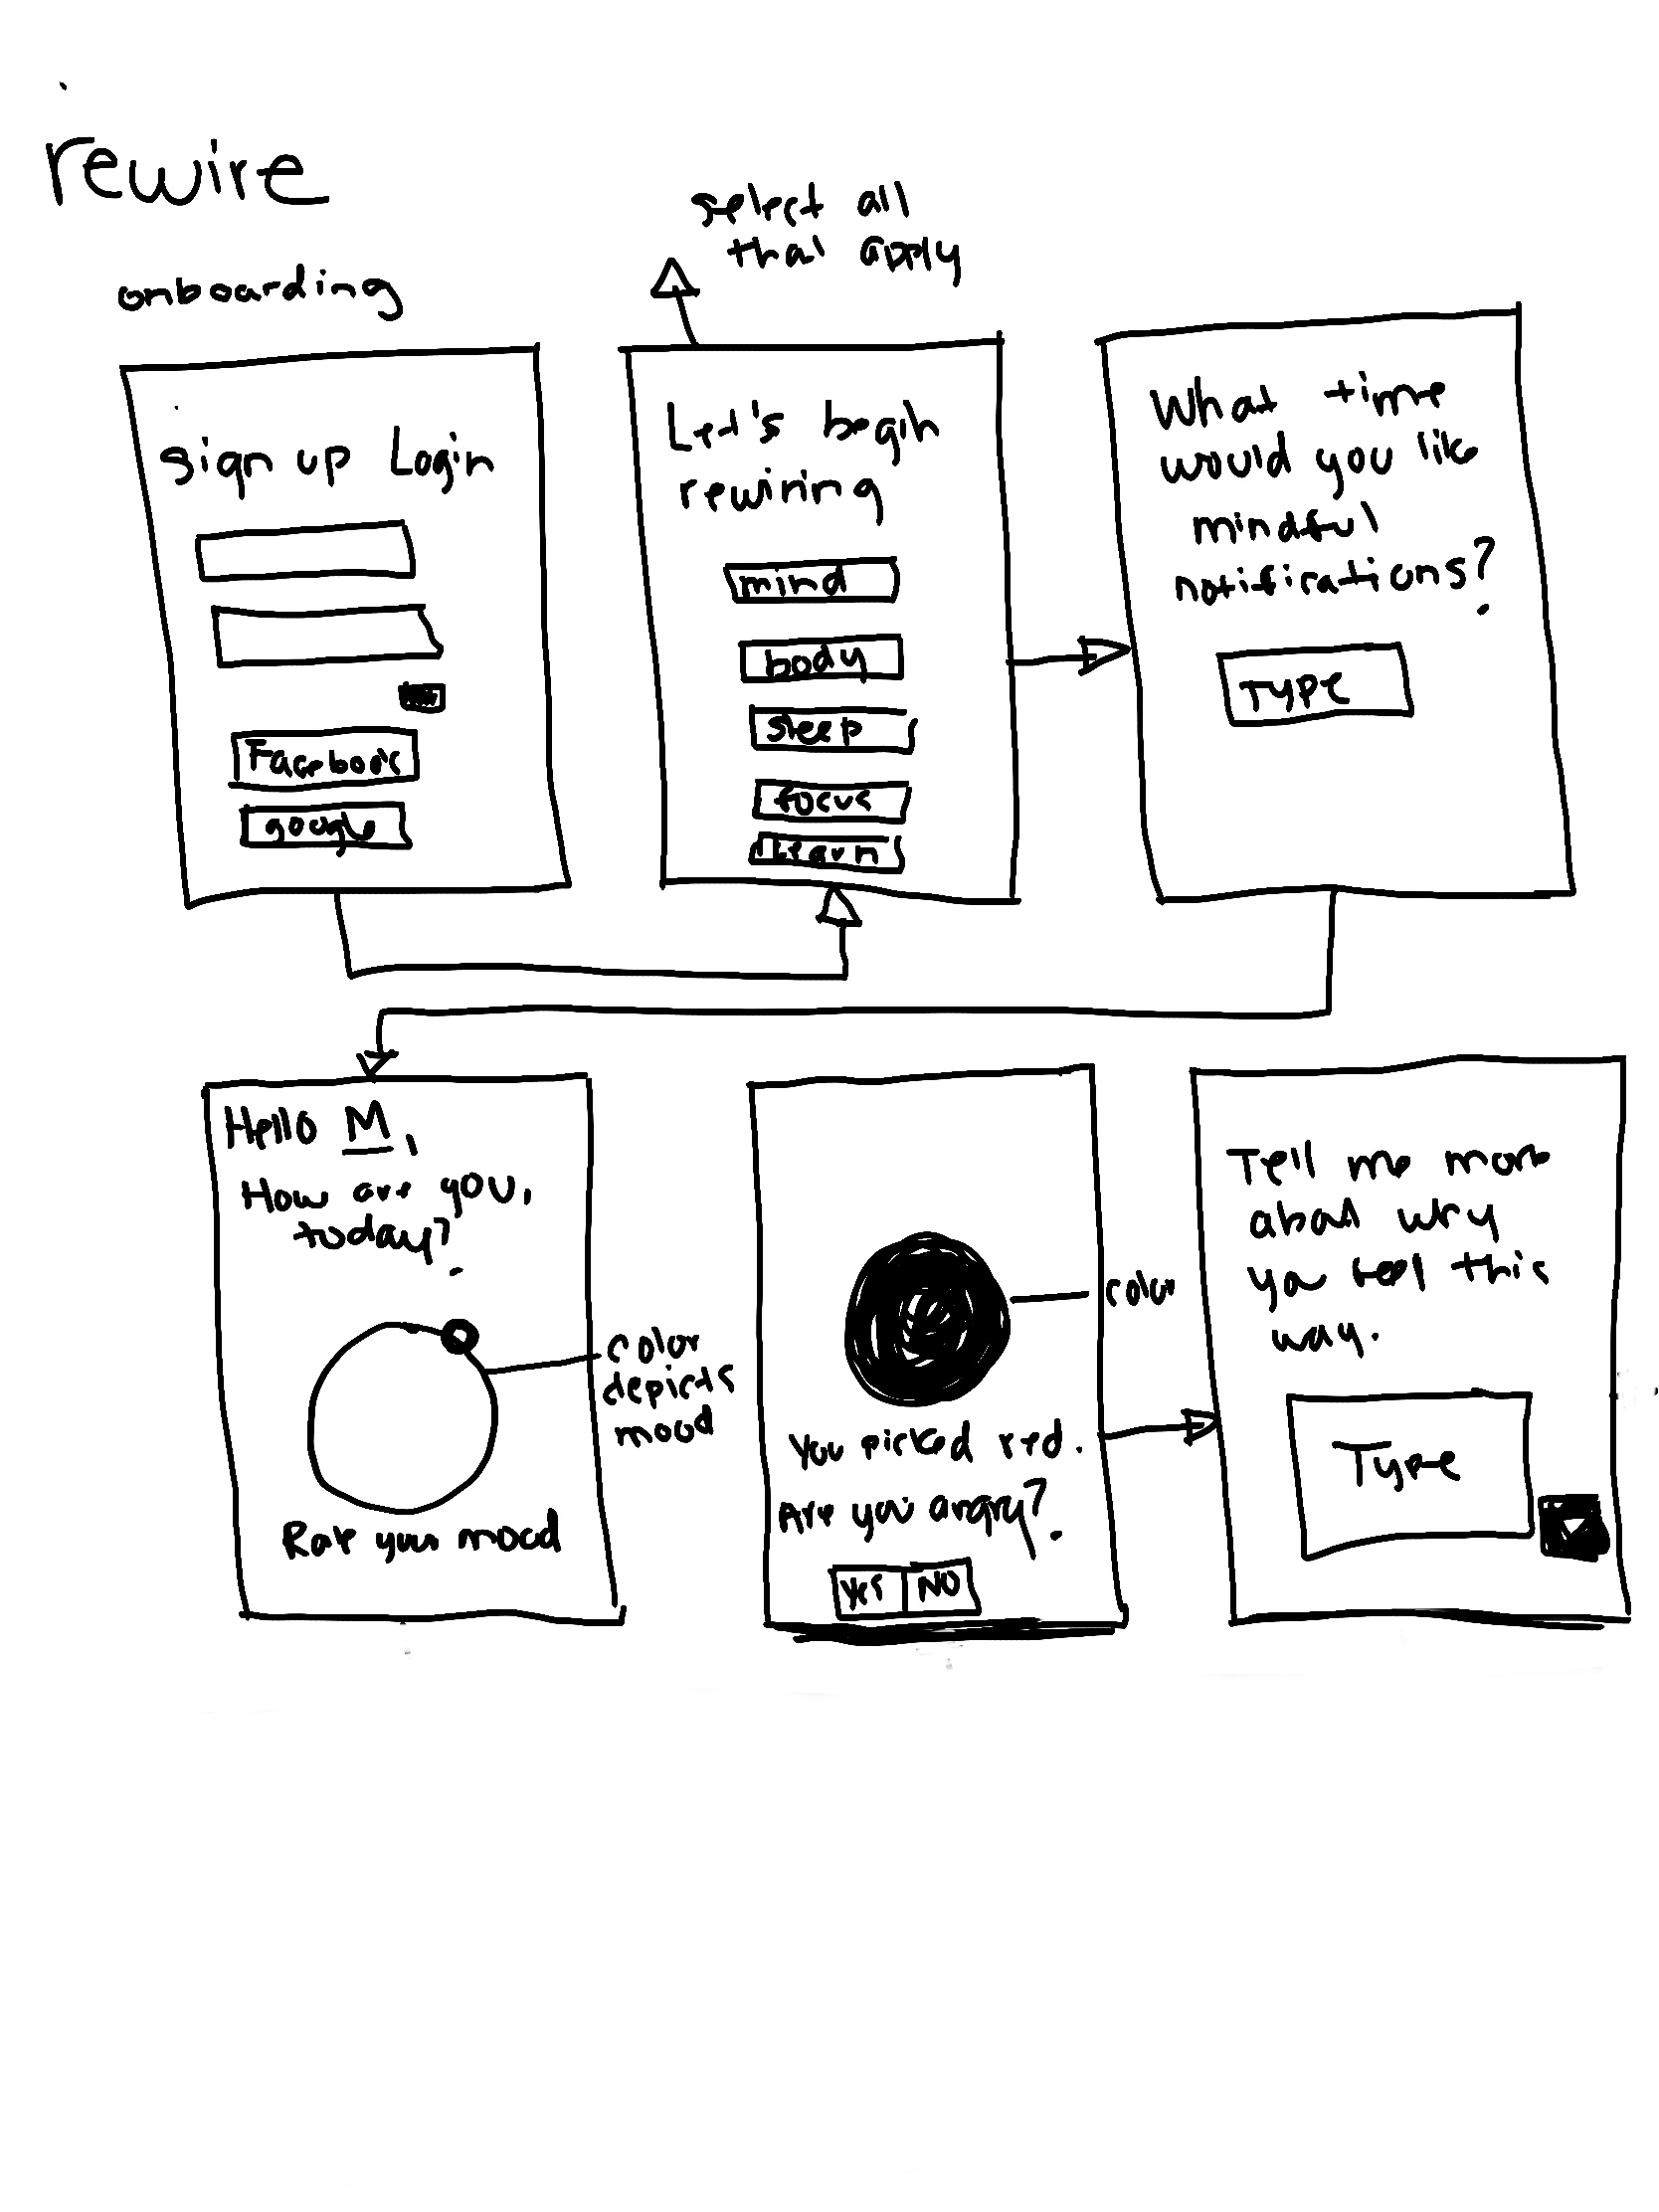 rewire
onboarding
select all
that apply
sign up Login
Facebook
google
Let's begin
rewiring
mind
body
sleep
focus
learn
What time
would you like
mindful
notifications?
TYPE
Hello M,
How are you,
today?
color
depicts
mood
Rate your mood
color
You picked red.
Are you angry?
Yes NO
Tell me more
about why
you feel this
way.
Type